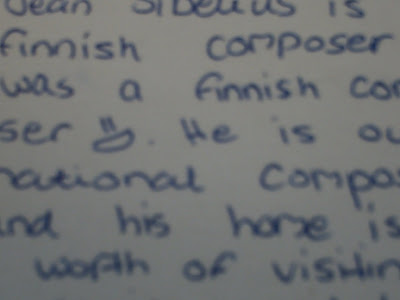 Jean Sibelius is
finnish composer
was a finnish com
ser =). He is ou
national compos
and his home is
worth of visitin